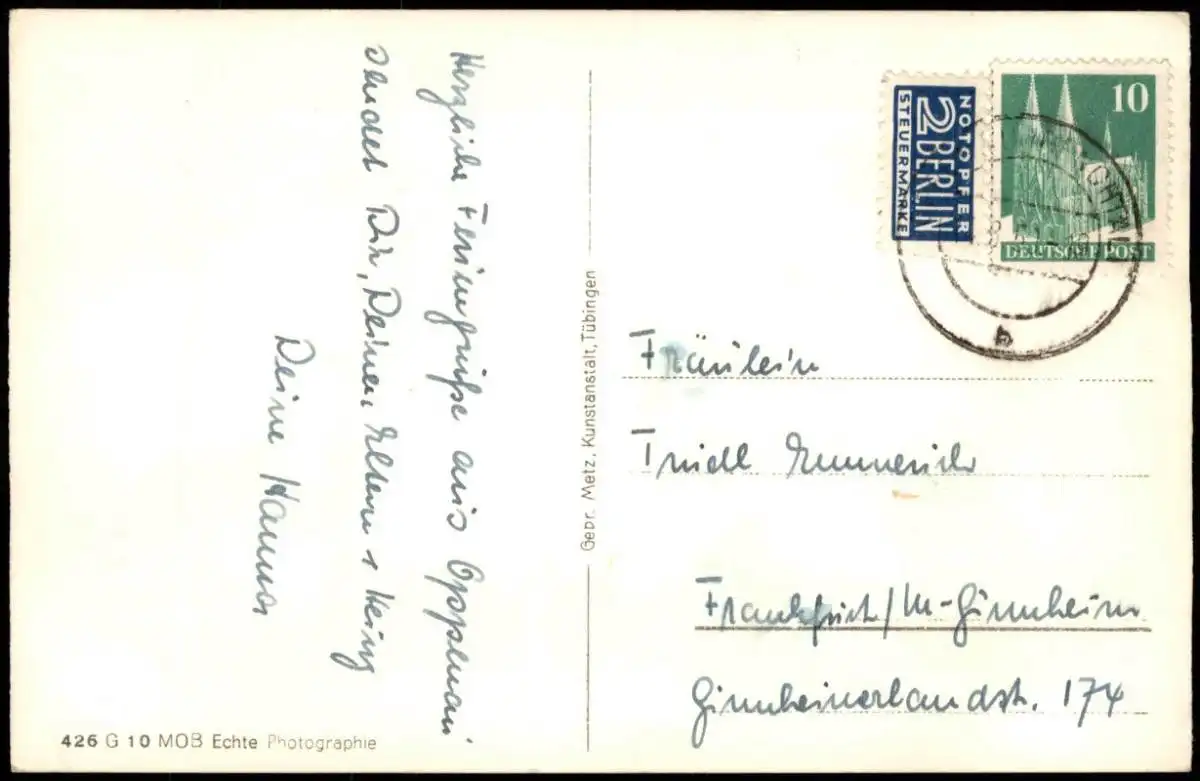 Herzliche Feriengrüße aus Oppenau
sendet Dir, Deinen Eltern +
Deine Hanna
Gebr. Metz, Kunstanstalt, Tübingen
426 G 10 MOB Echte Photographie
NOTOPFER
2 BERLIN
STEUERMARKE
10
DEUTSCHE POST
Fräulein
Trudl Emmerich
Frankfurt/M-Ginnheim
Ginnheimerlandstr. 174